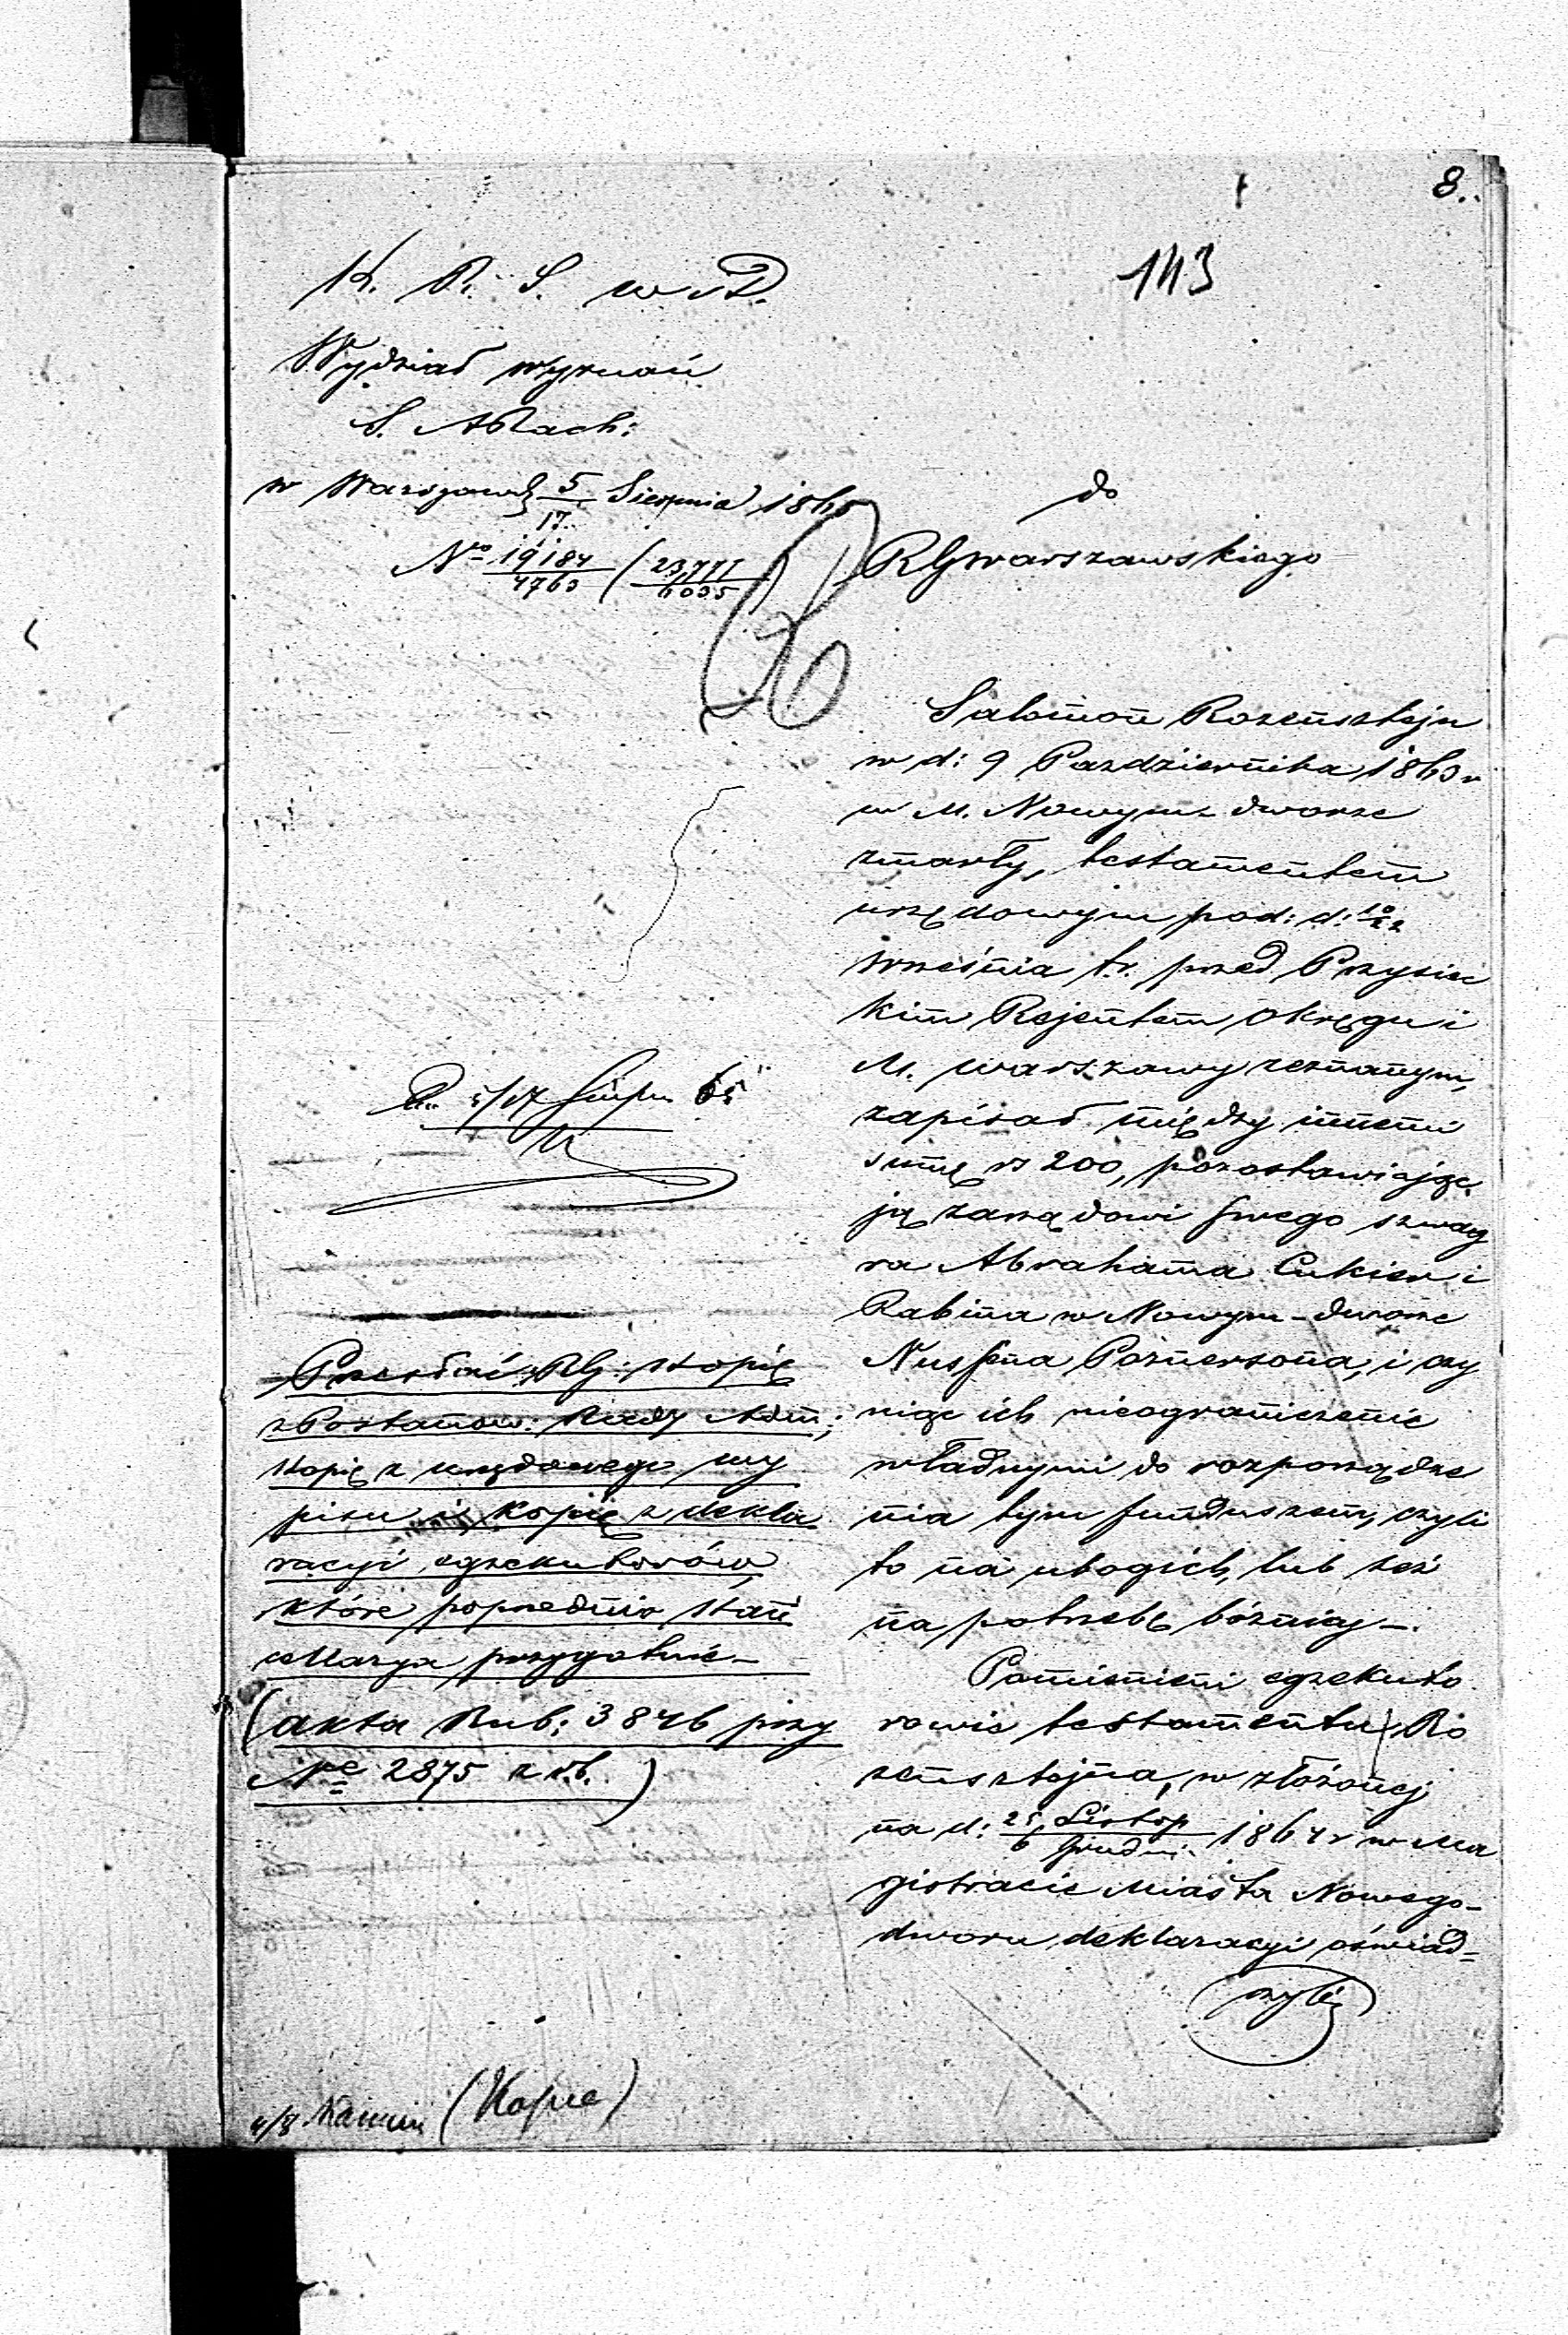 8.
143
K. R. S. w. D.
Wydział wyznań
S.
w Warszawie 5/17 Sierpnia 1865
No 19184/4763 (23777/6035)
do
RGWarszawskiego
Salomon Rozensztejn
w d: 9 Pazdziernika 1863 r
w M. Nowym dworze
zmarły, testamentem
urzędowym pod: d: 10/22
Września t.r. przed Przysiec
kim Rejentem Okręgu i
M. Warszawy zeznanym,
zapisał między innemi
sumę rs 200, pozostawiając
ją zarządowi swego szwag
ra Abrahama Cukier i
Rabina w Nowym-dworze
Nusena Poznersona, i czy
niąc ich nieograniczenie
władnymi do rozporządze
nia tym funduszem, czyli
to na ubogich, lub też
na potrzebę bóżnicy -.
Pomienieni egzekuto
rowie testamentu Ro
zensztejna, w złożonej
na d: 25 Listop/6 Grudni 1864 r w Ma
gistracie Miasta Nowego-
dworu deklaracyi oświad=
czyli
5/17 65
Przesłać RG: kopię
z Postanow: Rady Adm;
kopię z urzędowego wy
pisu i kopię z dekla
racyi egzekutorów
które poprzednio Kan
cellarya przygotuie -
(akta Rub: 3846 przy
Nre 2875 z r.b.)
4/8 (Kopie)